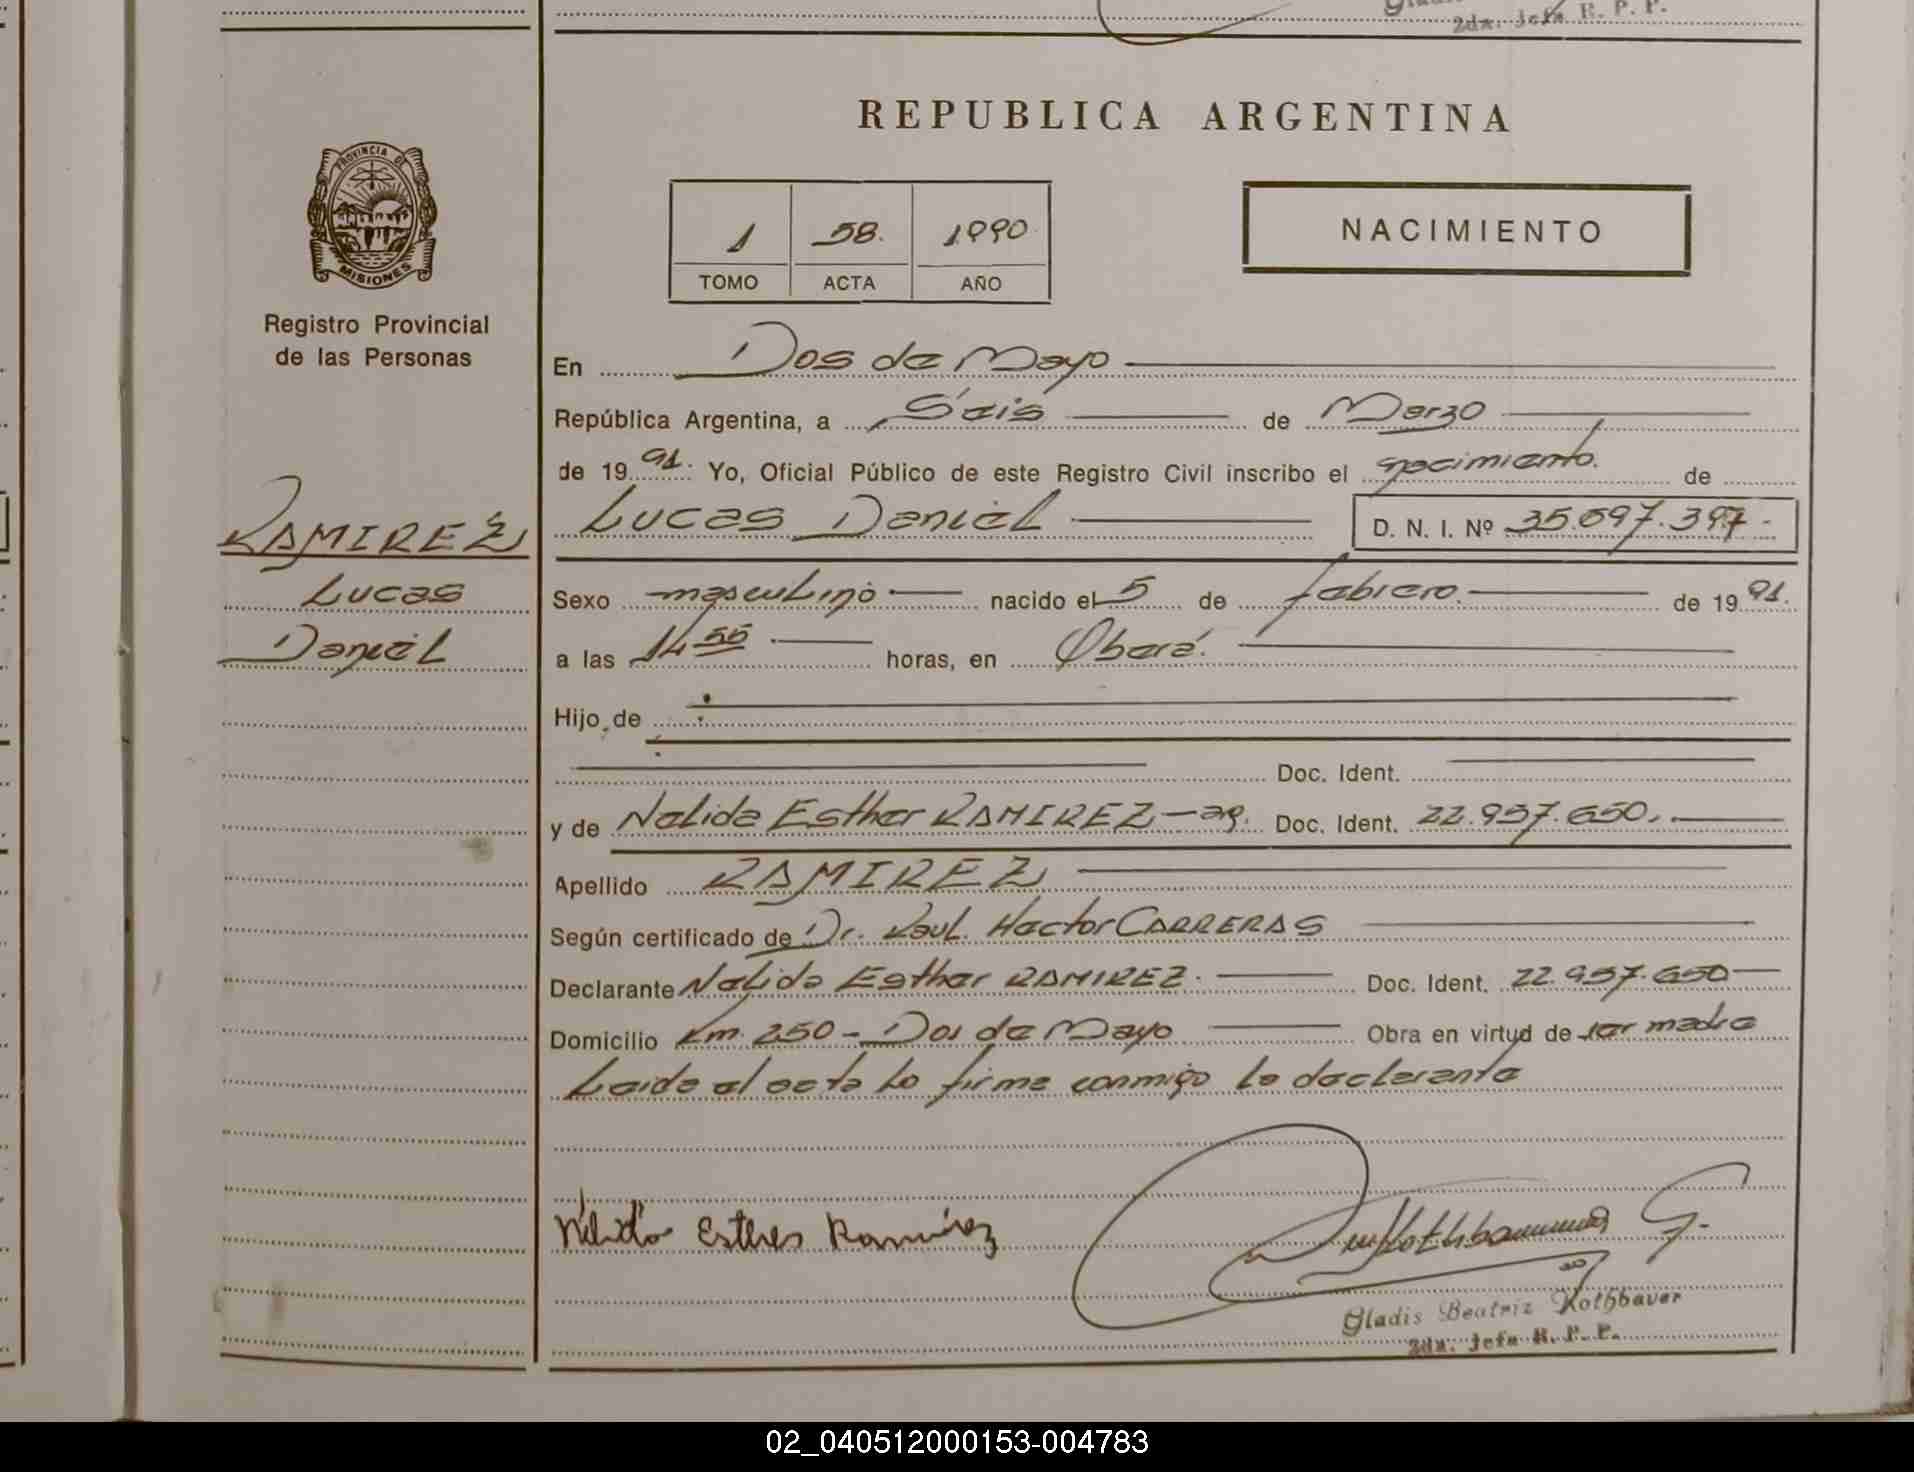 2da. Jefa R. P. P.
REPUBLICA ARGENTINA
PROVINCIA DE
MISIONES
1 58. 1990
TOMO ACTA AÑO
NACIMIENTO
Registro Provincial
de las Personas
RAMIREZ
Lucas
Daniel
En Dos de Mayo
República Argentina, a Seis de Marzo
de 1991. Yo, Oficial Público de este Registro Civil inscribo el nacimiento. de
Lucas Daniel D. N. I. Nº 35.697.397-
Sexo masculino nacido el 5 de febrero. de 1991.
a las 14 55 horas, en Oberá.
Hijo de
Doc. Ident.
y de Nelida Esther RAMIREZ - ar. Doc. Ident. 22.957.650.
Apellido RAMIREZ
Según certificado de Dr. Raul. Hector CARRERAS
Declarante Nelida Esther RAMIREZ. Doc. Ident. 22.957.650
Domicilio Km. 250 - Dos de Mayo Obra en virtud de ser madre
Leida el acta la firma conmigo la declarante
Nélida Esther Ramirez
Rothbauer G.
Gladis Beatriz Rothbauer
2da. Jefa R. P. P.
02_040512000153-004783